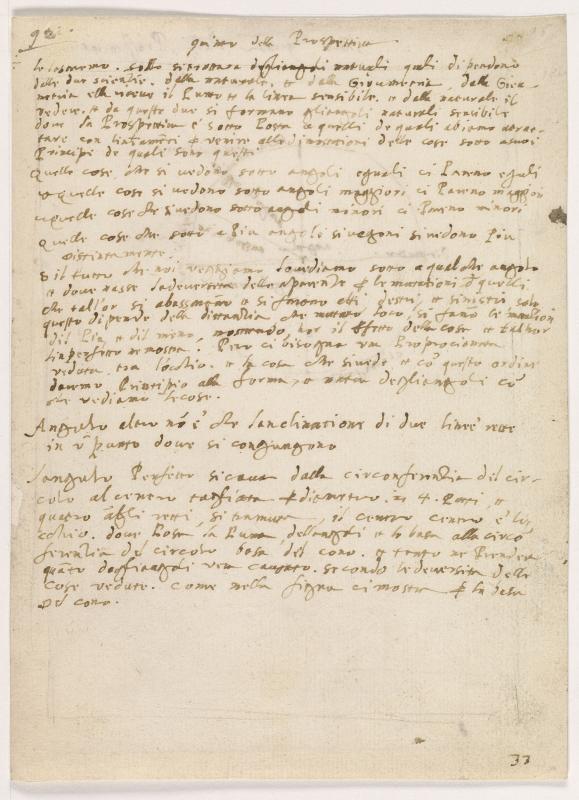 92
quinto della Prospettiva
sotto si trattara degliangoli naturali quali dipendono
dalle due scientie. dalla naturale, et dalla Giometria, dalla Gio
metria ella riceve il Punto et la linea sensibile. et dalla naturale il
vedere, et da queste due si formano gliangoli naturali sensibile
dove la Prospettiva è sotto Posta a quelli de quali abiamo atrat-
tare con et venire alle dimostrationi delle cose sotto a suoi
Principi de quali sono questi
Quelle cose che si vedono sotto angoli eguali ci Pareno eguali
et quelle cose si vedono sotto angoli maggiori ci Pareno maggiori
et quelle cose che si vedono sotto angoli minori ci Pareno minori
Quelle cose che sotto a Piu angoli si vegoni si vedono Piu
distintamente.
Et il tutto che noi veghiamo lo vediamo sotto a qualche angolo
et dove nasse la deversita delle aparente le mutationi quelli
che tall'or si abassano o si destri, et sinistri solo
questo dipende della distantia che mutato loco, si fano le mutationi
del Piu, et del meno, mostrando, hor il Efetto delle cose et talhor
linperfetto ne mostra. Pero ci bisogna una Proportionata
veduta tra l'ochio, et la cosa che si vede et cō questo ordine
daremo Principio alla forma, et natura degliangoli cō
che vediamo le cose.
Angulo altro nō è che lanclinatione di due linee rette
in ū punto dove si congiungono
langulo Perfetto si cava dalla circonferentia del cir-
colo al centro tagliata diametro in 4. Parti, et
quatro āgoli retti, si tramuta, il centro centro è lo
ochio. dove Posa la Punta dellangoli et la basa alla circō
ferentia del circolo basa del cono. et tanto ne Prendera
quāto degliangoli vera causato. secondo le deversita delle
Cose vedute. Come nella figura ci mostra la basa
Del cono.
33